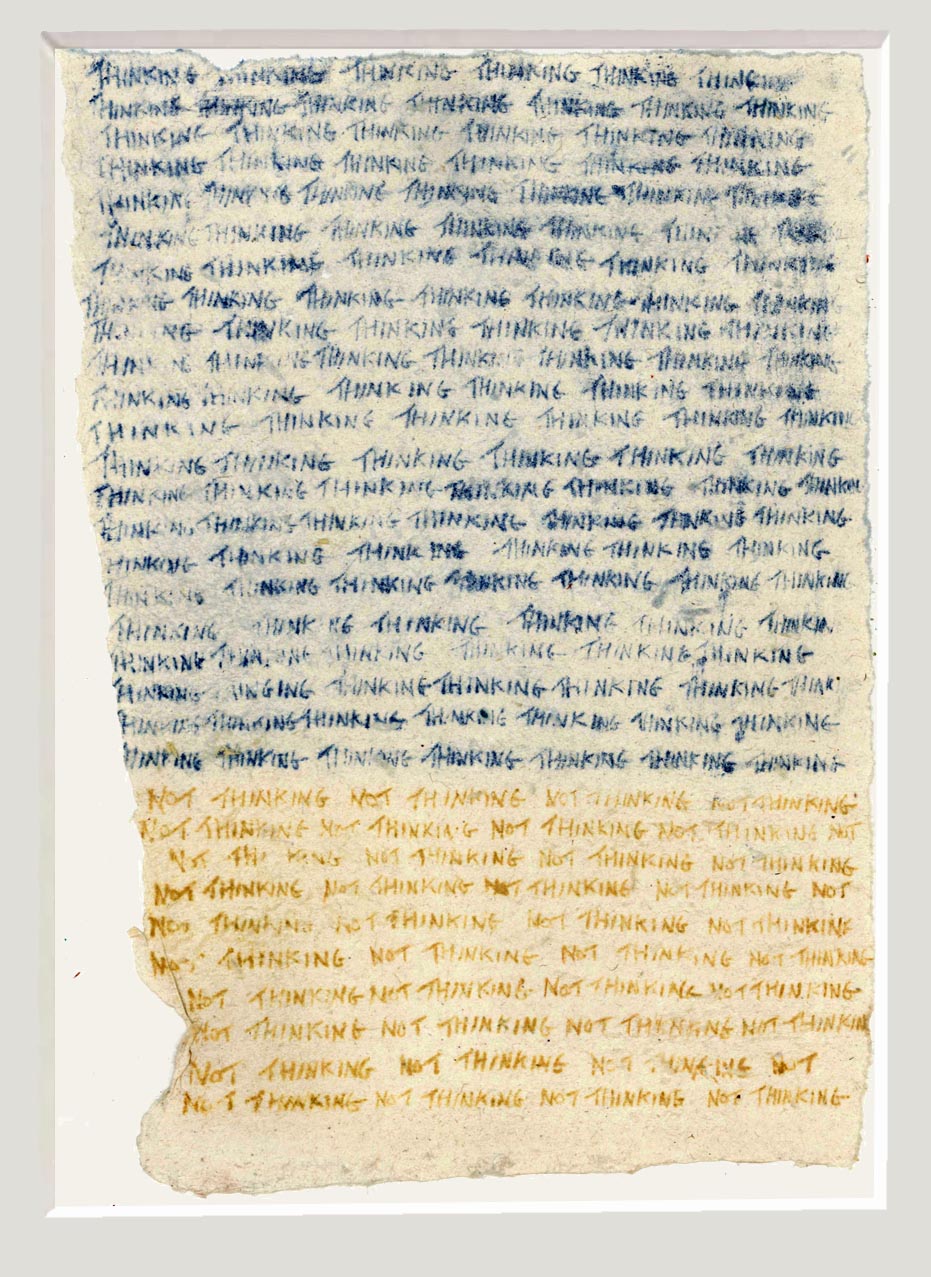 THINKING THINKING THINKING THINKING THINKING THINGING
THINKING THINKING THINKING THINKING THINKING THINKING THINKING
THINKING THINKING THINKING THINKING THINKING THINKING
THINKING THINKING THINKING THINKING THINKING THINKING
THINKING THINKING THINKING THINKING THINKING THINKING THINKING
THINKING THINKING THINKING THINKING THINKING THINKING
THINKING THINKING THINKING THINKING THINKING THINKING
THINKING THINKING THINKING THINKING THINKING THINKING THINKING
THINKING THINKING THINKING THINKING THINKING THINKING
THINKING THINKING THINKING THINKING THINKING THINKING THINKING
THINKING THINKING THINKING THINKING THINKING THINKING
THINKING THINKING THINKING THINKING THINKING THINKING
THINKING THINKING THINKING THINKING THINKING THINKING
THINKING THINKING THINKING THINKING THINKING THINKING THINKING
THINKING THINKING THINKING THINKING THINKING THINKING THINKING
THINKING THINKING THINKING THINKING THINKING THINKING
THINKING THINKING THINKING THINKING THINKING THINKING THINKING
THINKING THINKING THINKING THINKING THINKING THINKIN
THINKING THINKING THINKING THINKING THINKING THINKING
THINKING THINKING THINKING THINKING THINKING THINK
THINKING THINKING THINKING THINKING THINKING THINKING THINKING
THINKING THINKING THINKING THINKING THINKING THINKING THINKING
NOT THINKING NOT THINKING NOT THINKING NOT THINKING
NOT THINKING NOT THINKING NOT THINKING NOT THINKING NOT
NOT THINKING NOT THINKING NOT THINKING NOT THINKING
NOT THINKING NOT THINKING NOT THINKING NOT THINKING NOT
NOT THINKING NOT THINKING NOT THINKING NOT THINKING
NOT THINKING NOT THINKING NOT THINKING NOT THINKING
NOT THINKING NOT THINKING NOT THINKING NOT THINKING
NOT THINKING NOT THINKING NOT THINKING NOT THINKIN
NOT THINKING NOT THINKING NOT NOT
NOT THINKING NOT THINKING NOT THINKING NOT THINKING